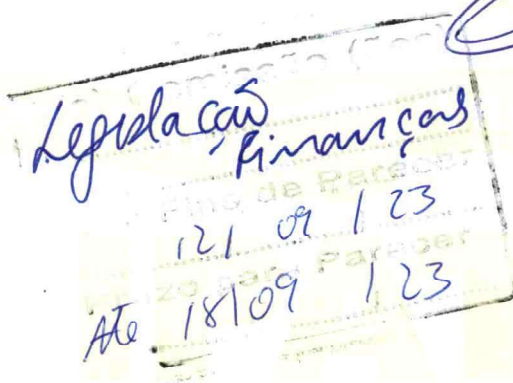 Comissão (ões)
Legislação
Finanças
Fins de Parecer
12/ 09 / 23
Prazo para Parecer
Até 18/09 / 23